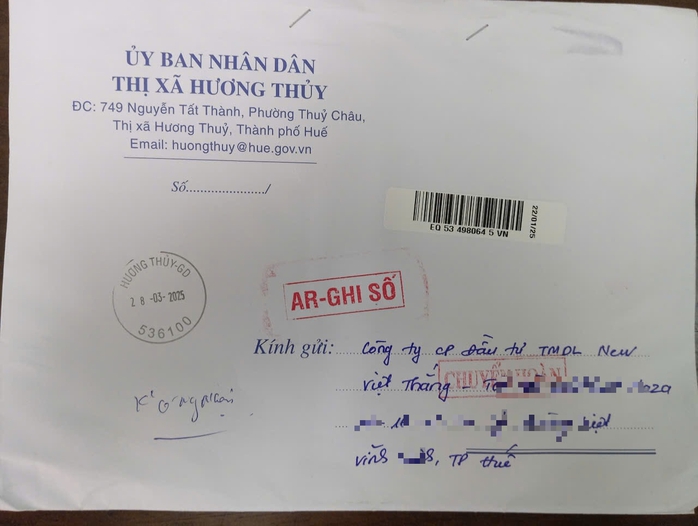 ỦY BAN NHÂN DÂN
THỊ XÃ HƯƠNG THỦY
ĐC: 749 Nguyễn Tất Thành, Phường Thuỷ Châu,
Thị xã Hương Thuỷ, Thành phố Huế
Email: huongthuy@hue.gov.vn
Số....................../
22/01/25
EQ 53 498064 5 VN
HƯƠNG THỦY-GD
28-03-2025
536100
AR-GHI SỐ
Kính gửi: Công ty CP Đầu tư TMDL New
Việt Thắng
CHUYỂN HOÀN
TP Huế